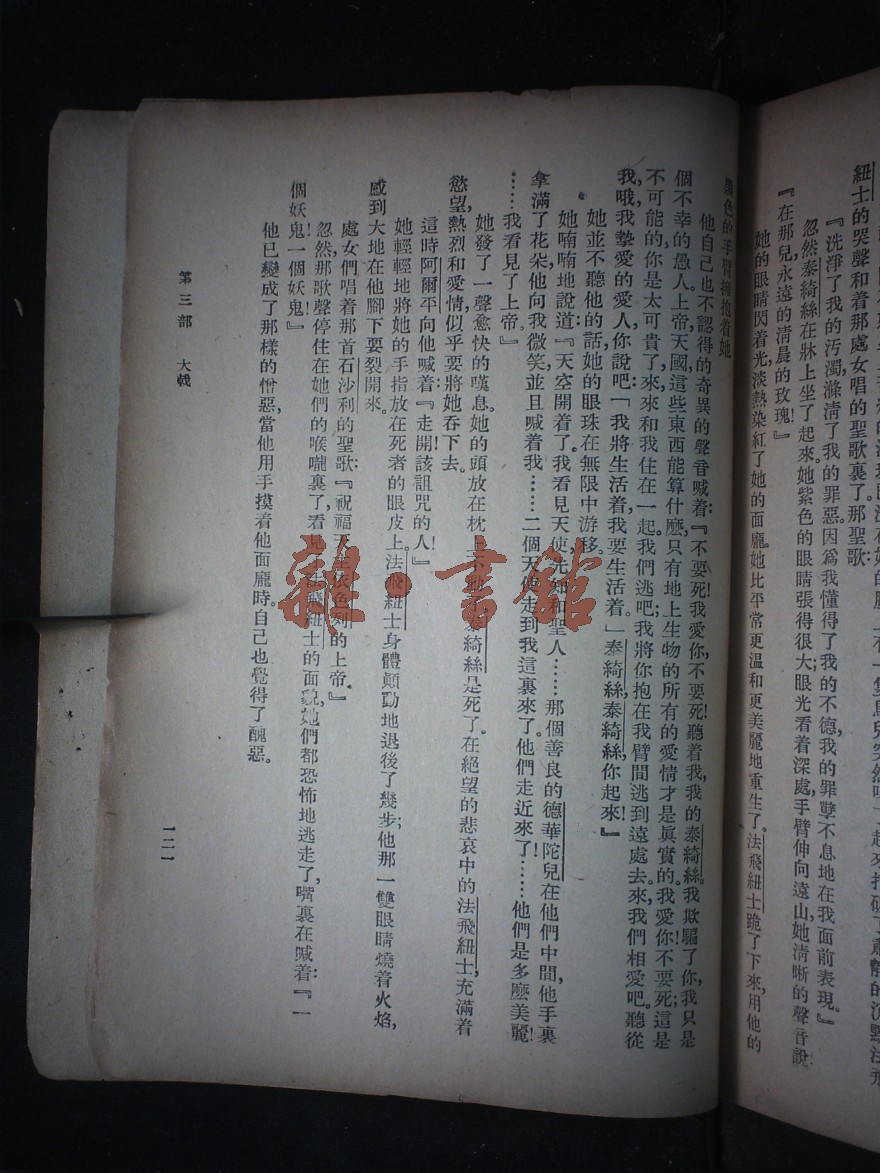 紐士的哭聲和着那處女唱的聖歌裏了。那聖歌:
『洗淨了我的污濁,滌清了我的罪惡。因爲我懂得了我的不德,我的罪孽不息地在我面前表現。』
忽然泰綺絲在牀上坐了起來。她紫色的眼睛張得很大,眼光看着深處,手臂伸向遠山,她淸晰的聲音說:
『在那兒,永遠的淸晨的玫瑰!』
她的眼睛閃着光,淡熱染紅了她的面龐。她比平常更溫和更美麗地重生了。法飛紐士跪了下來,用他的
黑色的手臂擁抱着她
他自己也不認得的奇異的聲音喊着:『不要死!我愛你,不要死!聽着我,我的泰綺絲。我欺騙了你,我只是
個不幸的愚人。上帝,天國,這些東西能算什麽,只有地上生物的所有的愛情才是眞實的。我愛你!不要死;這是
不可能的,你是太可貴了。來,來和我住在一起。我們逃吧;我將你抱在我臂間逃到遠處去。來,我們相愛吧。聽從
我,哦,我摯愛的愛人,你說吧:「我將生活着,我要生活着。」泰綺絲,泰綺絲,你起來!』
她並不聽他的話,她的眼珠在無限中游移。
她喃喃地說道:『天空開着了。我看見天使,先知和聖人……那個善良的德華陀兒在他們中間,他手裏
拿滿了花朵,他向我微笑,並且喊着我……二個天使走到我這裏來了。他們走近來了……他們是多麽美麗!
……我看見了上帝。』
她發了一聲愈快的嘆息。她的頭放在枕上不動了。泰綺絲是死了。在絕望的悲哀中的法飛紐士,充滿着
慾望,熱烈和愛情,似乎要將她吞下去。
這時阿爾平向他喊着:『走開!該詛咒的人!』
她輕輕地將她的手指放在死者的眼皮上。法飛紐士身體顛動地退後了幾步;他那一雙眼睛燒着火焰,
感到大地在他脚下要裂開來。
處女們唱着那首石沙利的聖歌:『祝福天主,依色列的上帝。』
忽然,那歌聲停住在她們的喉嚨裏了,看見了法飛紐士的面貌,她們都恐怖地逃走了,嘴裏在喊着:『一
個妖鬼!一個妖鬼!』
他已變成了那樣的憎惡,當他用手摸着他面龐時,自己也覺得了醜惡。
第三部 大戟
一二一
雜·書館